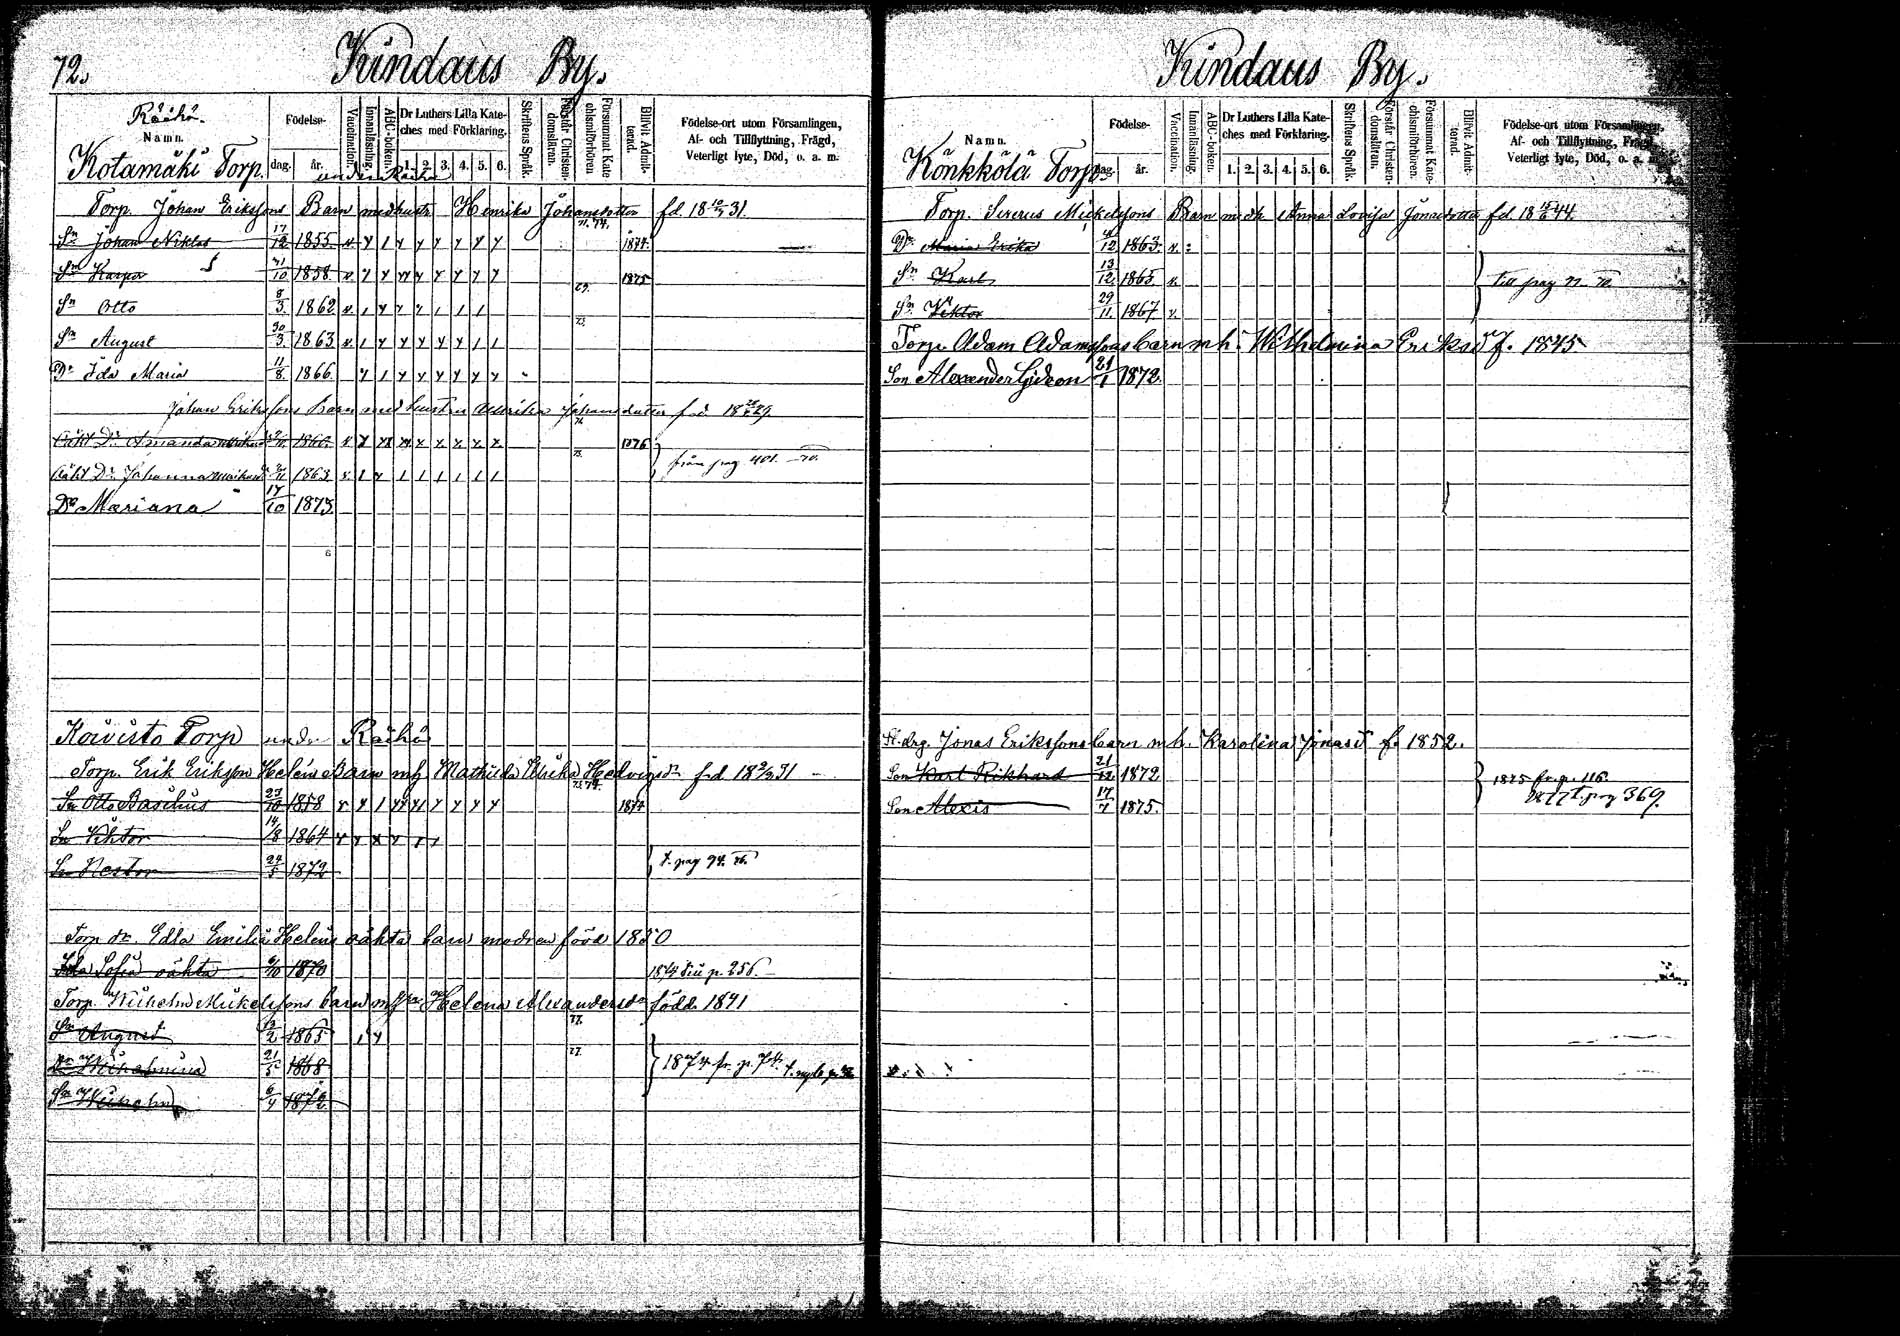 72.
Kindaus By.
Räihä.
Namn.
Födelse-
dag. år.
Vaccination.
Innanläsning.
ABC-boken.
Dr Luthers Lilla Kate-
ches med Förklaring.
1. 2. 3. 4. 5. 6.
Skriftens Språk.
Förstår Christen-
domsläran.
Försummat Kate-
chismiförhören
Blifvit Admit-
terad.
Födelse-ort utom Församlingen,
Af- och Tillflyttning, Frägd,
Veterligt lyte, Död, o. a. m.
Kotamäki Torp. under Räihä
Torp. Johan Erikssons Barn med hustr. Henrika Johansdotter fd. 18 31.
Sn Johan Niklas 17/12 1855 1874.
Sn Kasper 31/10 1858 1875
Sn Otto 8/3 1862
Sn August 30/3 1863
Dr Ida Maria 11/8 1866.
Johan Erikssons Barn med hustrun Ulrika Johansdotter fød 18 29
Oäkt Dr Amanda 1860 1876
Oäkt Dr Johanna 1863 från pag 401.
Dr Mariana 17/10 1873
Koivisto Torp under Räihä
Torp. Erik Erikson Helens Barn mh Mathilda Ulrika Hedvigsdr f-d 18 31
Sn Otto Basilius 23/10 1858 1877
Sn Viktor 14/8 1864
Sn Nestor 24/5 1872 t. pag 94.
Torp. dr. Edla Emilia Helens oäkta barn modren född 1850
Ida Sofia oäkta 6/10 1870 1874 p. 256.
Torp. Wilhelm Mikelssons barn mh Helena Alexandersdr född 1841
Sn August 12/2 1865
Dr Wilhelmina 21/5 1868 1874 fr. p. 74.
Sn Wilhelm 6/4 1872
Kindaus By.
Namn.
Födelse-
dag. år.
Vaccination.
Innanläsning.
ABC-boken.
Dr Luthers Lilla Kate-
ches med Förklaring.
1. 2. 3. 4. 5. 6.
Skriftens Språk.
Förstår Christen-
domsläran.
Försummat Kate-
chismiförhören.
Blifvit Admit-
terad.
Födelse-ort utom Församlingen,
Af- och Tillflyttning, Frägd,
Veterligt lyte, Död, o. a. m.
Könkkölä Torp
Torp. Sererus Mickelssons Barn m h Anna Lovisa Jonasdotter fd. 18 15/6 44.
Dr Maria Erika 4/12 1863
Sn Karl 13/12 1865 till pag
Sn Viktor 29/11 1867
Torp. Adam Adamssons barn mh. Wilhelmina Eriksd f. 1845
Son Alexander Gideon 21/1 1872.
Jonas Erikssons barn mh. Karolina Jonasd f. 1852.
Son Karl Rikhard 21/12 1872 1875 fr. p. 116.
Son Alexis 17/7 1875. t. pag 369.